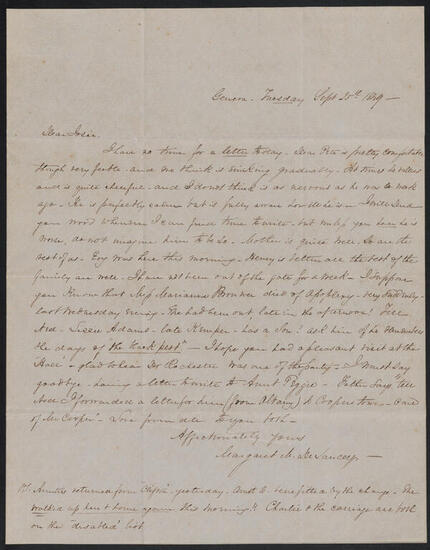 Geneva. Tuesday Sept 25th 1849 —
Dear Josie.
I have no time for a letter today. Dear Pete is pretty comfortable
though very feeble - and we think is sinking gradually. At times is restless
and is quite cheerful - and I do not think is as nervous as he was a week
ago - He is perfectly calm but is fully aware how ill he is - I will send
you word whenever I can find time to write - but unless you hear he is
worse, do not imagine him to be so. Mother is quite well. So are the
rest of us - was here this morning. Henry is better all the rest of the
family are well - I have not been out of the gate for a week - I suppose
you know that Miss Marianne died of Apoplexy - very suddenly -
last Wednesday evening. She had been out, late in the afternoon! Tell
Ned - Susan Adams - late Kemper - has a Son! ask him if he remembers
the days of "the back pest" — I hope you had a pleasant visit at the
Hall - glad to hear Dr Rochester was one of the party - I must say
goodbye - having a letter to write to Aunt Peggie - Father says, tell
Ned I forwarded a letter for him (from Albany) to Cooperstown - care
of Mr Cooper - Love from all to you both -
Affectionately Yours
Margaret M. De Lancey
PS. returned from Clifton yesterday. Aunt A. benefitted by the change. She
walked up here & home again this morning!! Charlie & the carriage are both
on the 'disabled' list.